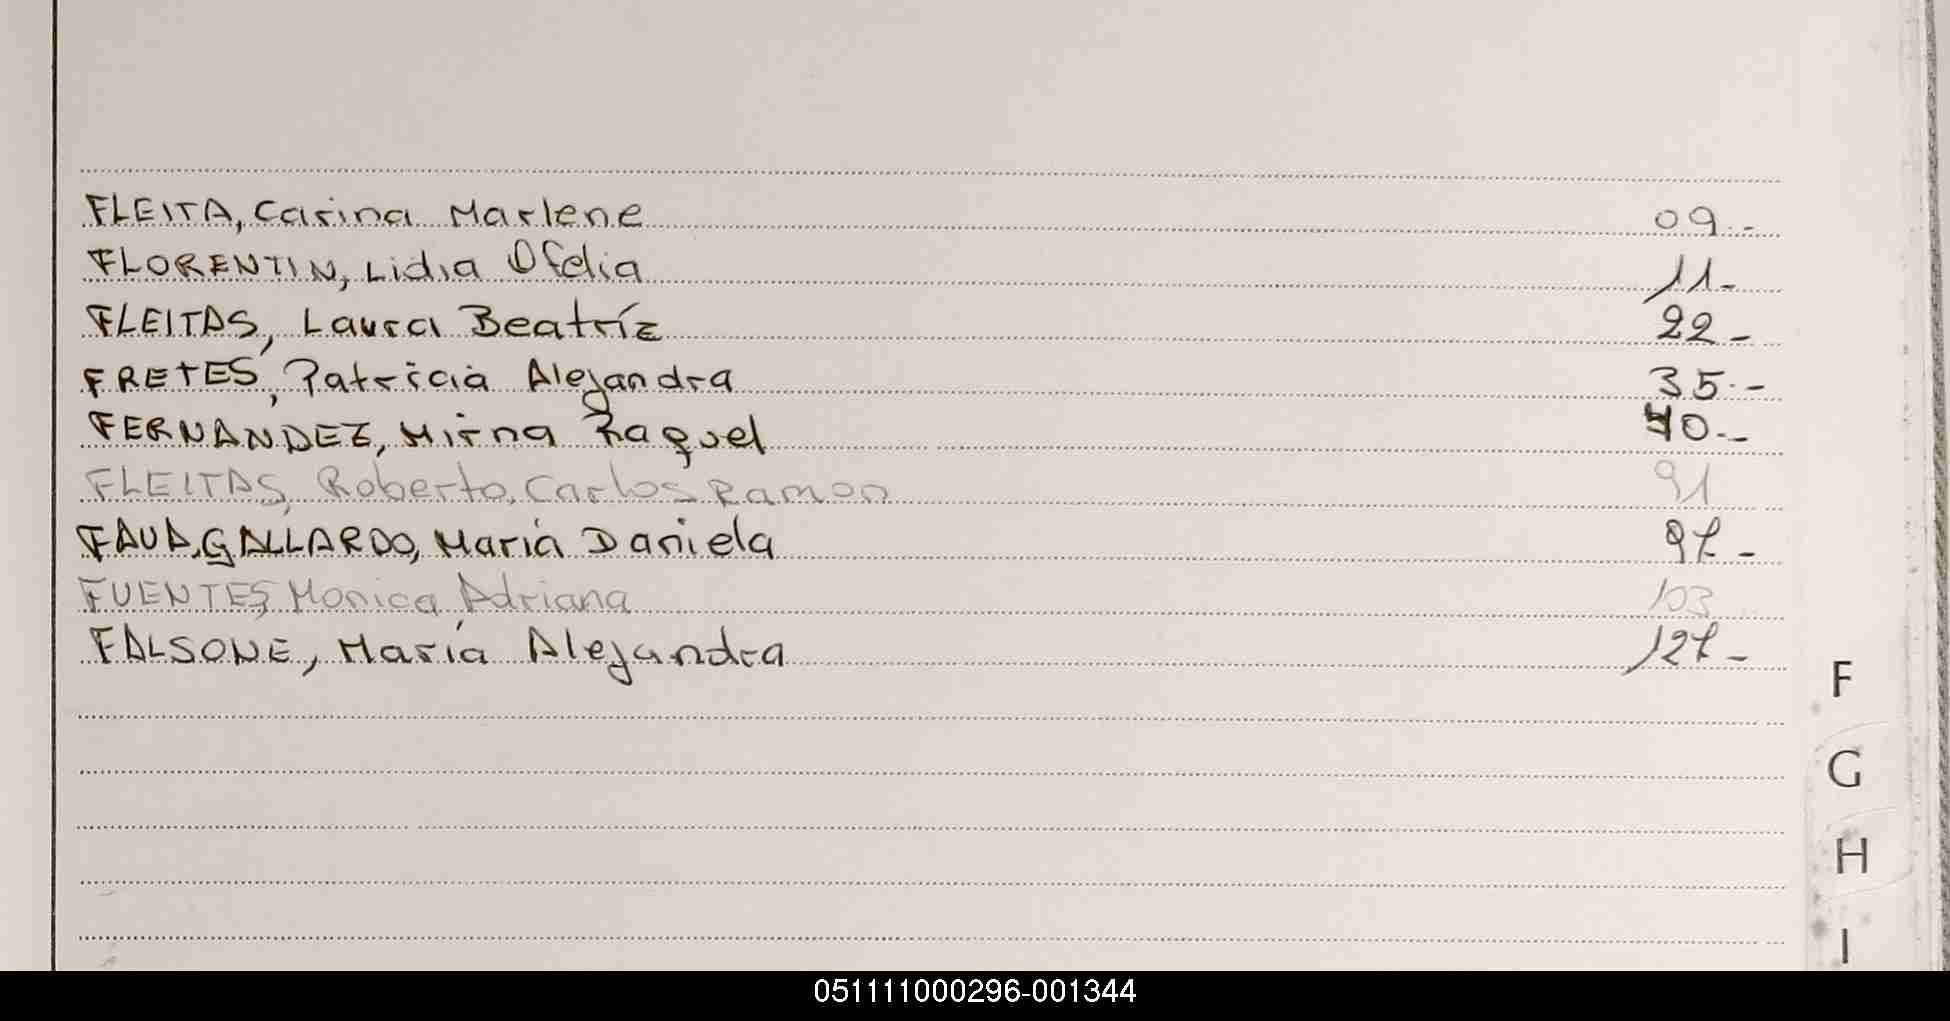 FLEITA, Carina Marlene 09.-
FLORENTIN, Lidia Ofelia 11-
FLEITAS, Laura Beatríz 22-
FRETES, Patricia Alejandra 35.-
FERNANDEZ, Mirna Raquel 40.-
FLEITAS, Roberto Carlos Ramon 91
FAVA GALLARDO, María Daniela 97-
FUENTES, Monica Adriana 103
FALSONE, María Alejandra 127-
F
G
H
I
051111000296-001344